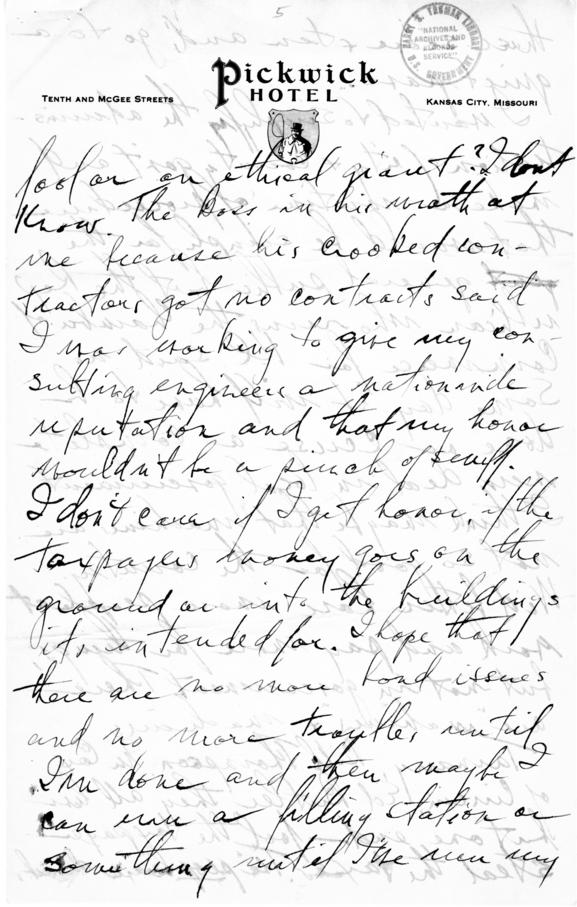 5
HARRY S. TRUMAN LIBRARY
"NATIONAL
ARCHIVES AND
RECORDS
SERVICE"
U.S. GOVERNMENT
Pickwick
HOTEL
TENTH AND MCGEE STREETS
KANSAS CITY, MISSOURI
fool or an ethical giant? I dont
know. The Boss in his wrath at
me because his crooked con-
tractors got no contracts said
I was working to give my con-
sulting engineers a nationwide
reputation and that my honor
wouldn't be a pinch of snuff.
I don't care if I get honor, if the
taxpayers money goes on the
ground or into the buildings
its intended for. I hope that
there are no more bond issues
and no more troubles until
I'm done and then maybe I
can run a filling station or
something until I've run my